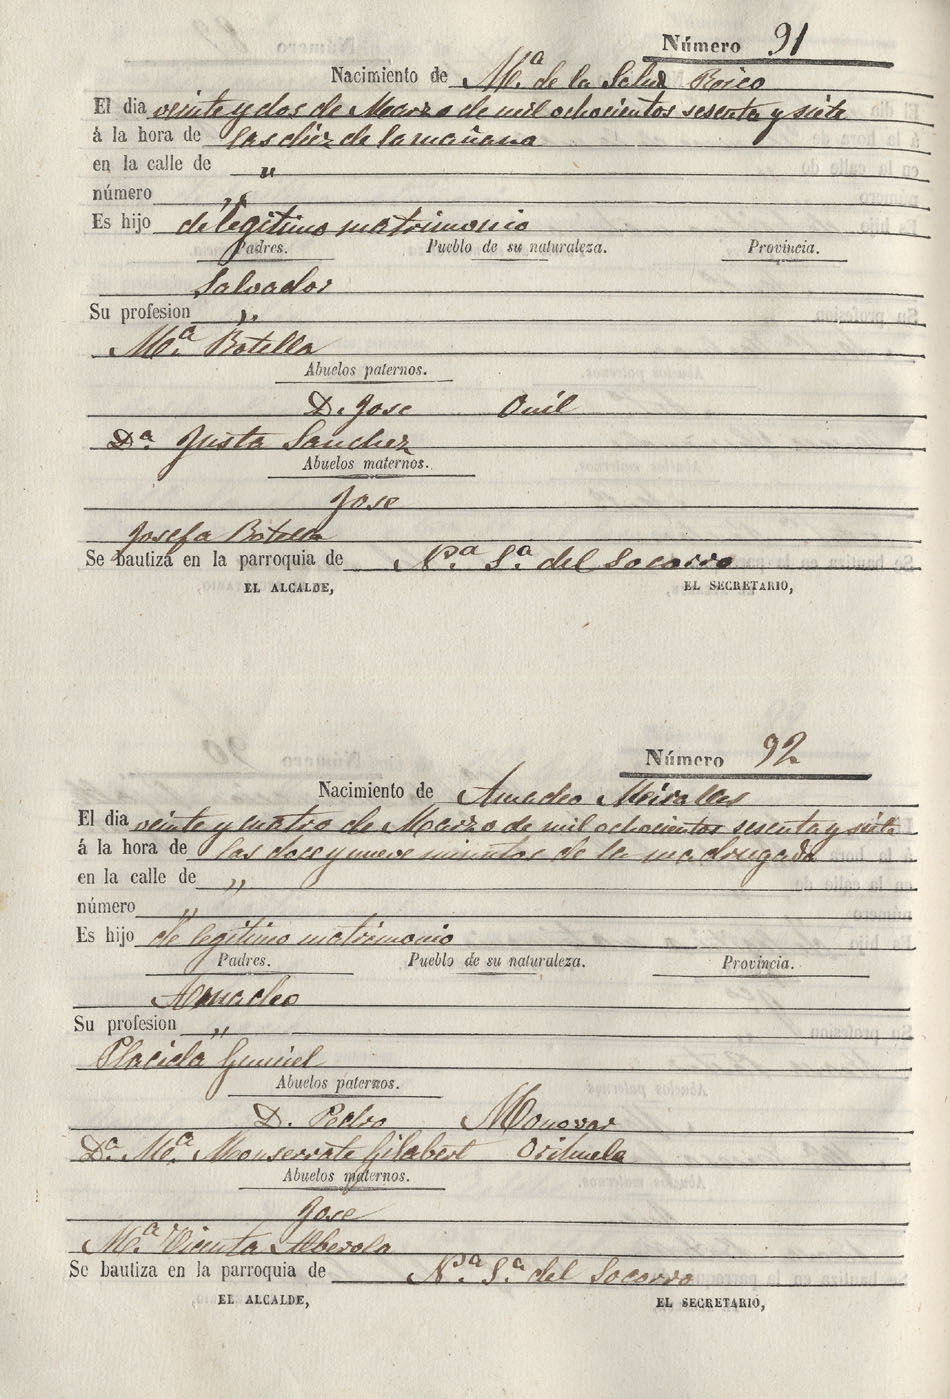 Número 91
Nacimiento de Mª. de la Salud Rico
El dia veinte y dos de Marzo de mil ochocientos sesenta y siete
á la hora de las diez de la mañana
en la calle de "
número "
Es hijo de legitimo matrimonio
Padres. Pueblo de su naturaleza. Provincia.
Salvador
Su profesion "
Mª. Botella
Abuelos paternos.
D. Jose Onil
Dª. Justa Sanchez
Abuelos maternos.
Jose
Josefa Botella
Se bautiza en la parroquia de Nª. Sª. del Socorro
EL ALCALDE, EL SECRETARIO,
Número 92
Nacimiento de Amadeo Miralles
El dia veinte y cuatro de Marzo de mil ochocientos sesenta y siete
á la hora de las doce y nueve minutos de la madrugada
en la calle de "
número "
Es hijo de legitimo matrimonio
Padres. Pueblo de su naturaleza. Provincia.
Amadeo
Su profesion "
Placida Gumiel
Abuelos paternos.
D. Pedro Monovar
Dª. Mª. Monserrate Gilabert Orihuela
Abuelos maternos.
Jose
Mª. Vicenta Alberola
Se bautiza en la parroquia de Nª. Sª. del Socorro
EL ALCALDE, EL SECRETARIO,